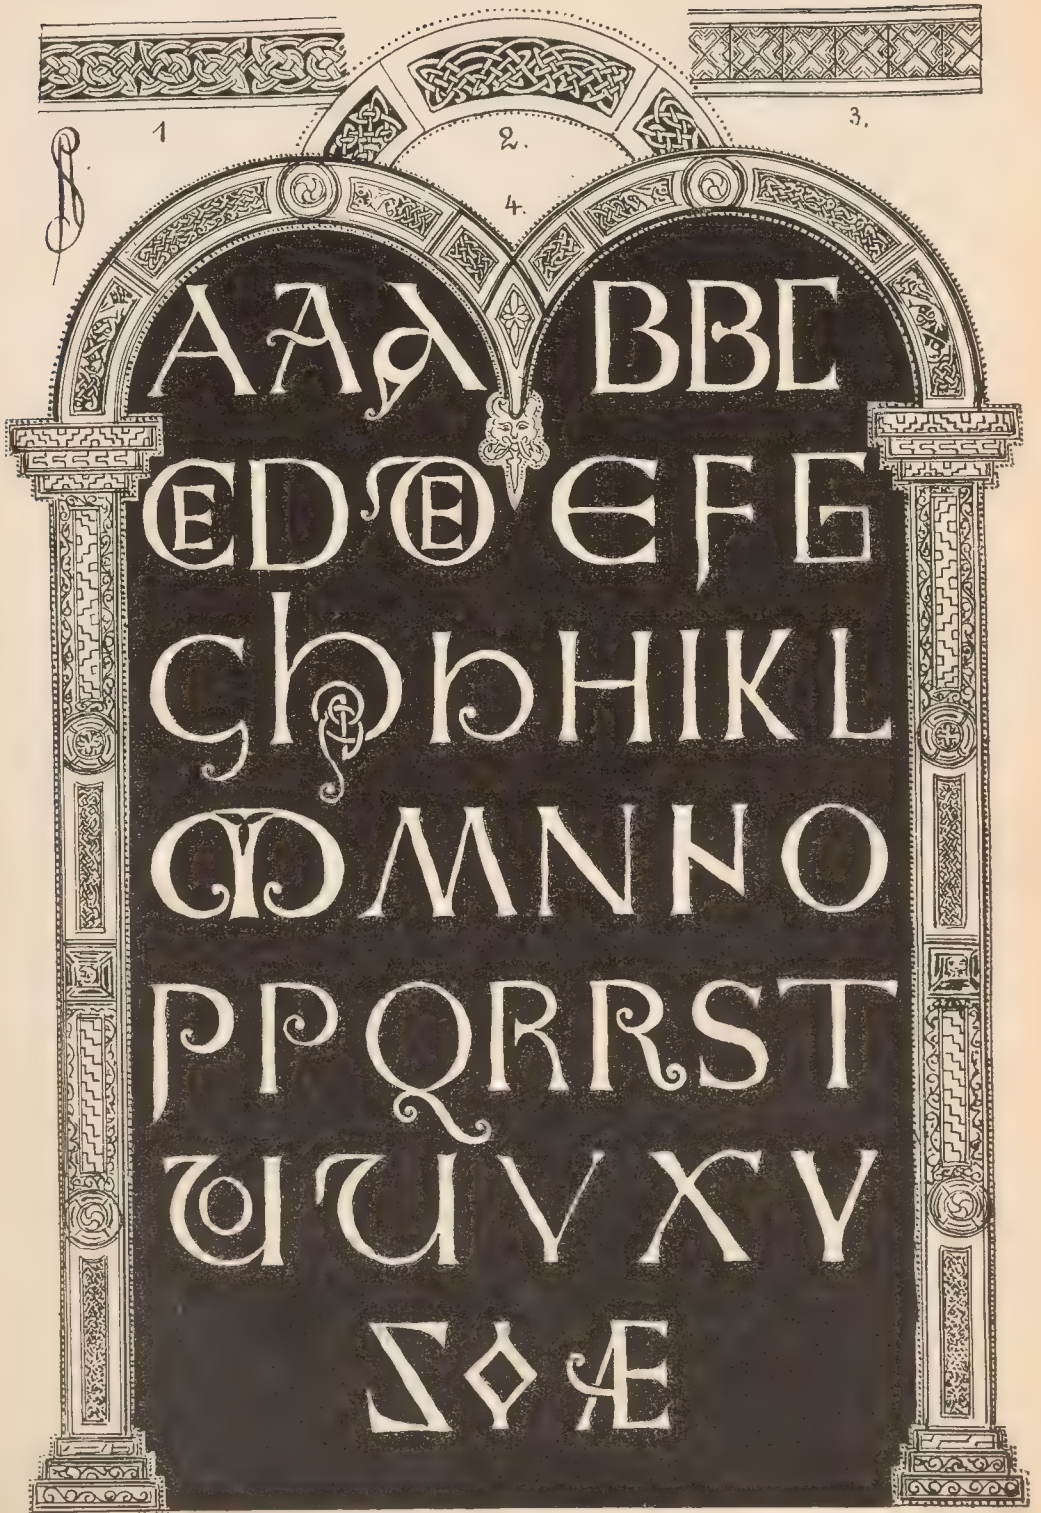 1 2. 3.
4.
A A A B B C
CE D DE E F G
G h h H I K L
M M N N O
P P Q R R S T
U U V X Y
Z O Æ